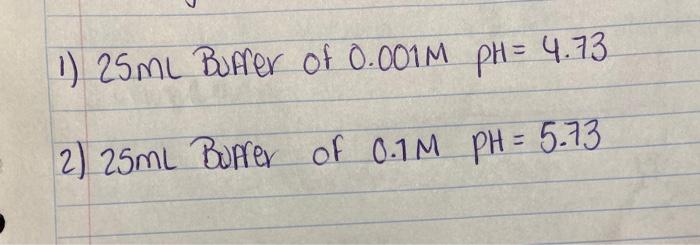 1) 25mL Buffer of 0.001M pH = 4.73
2) 25mL Buffer of 0.1M pH = 5.73